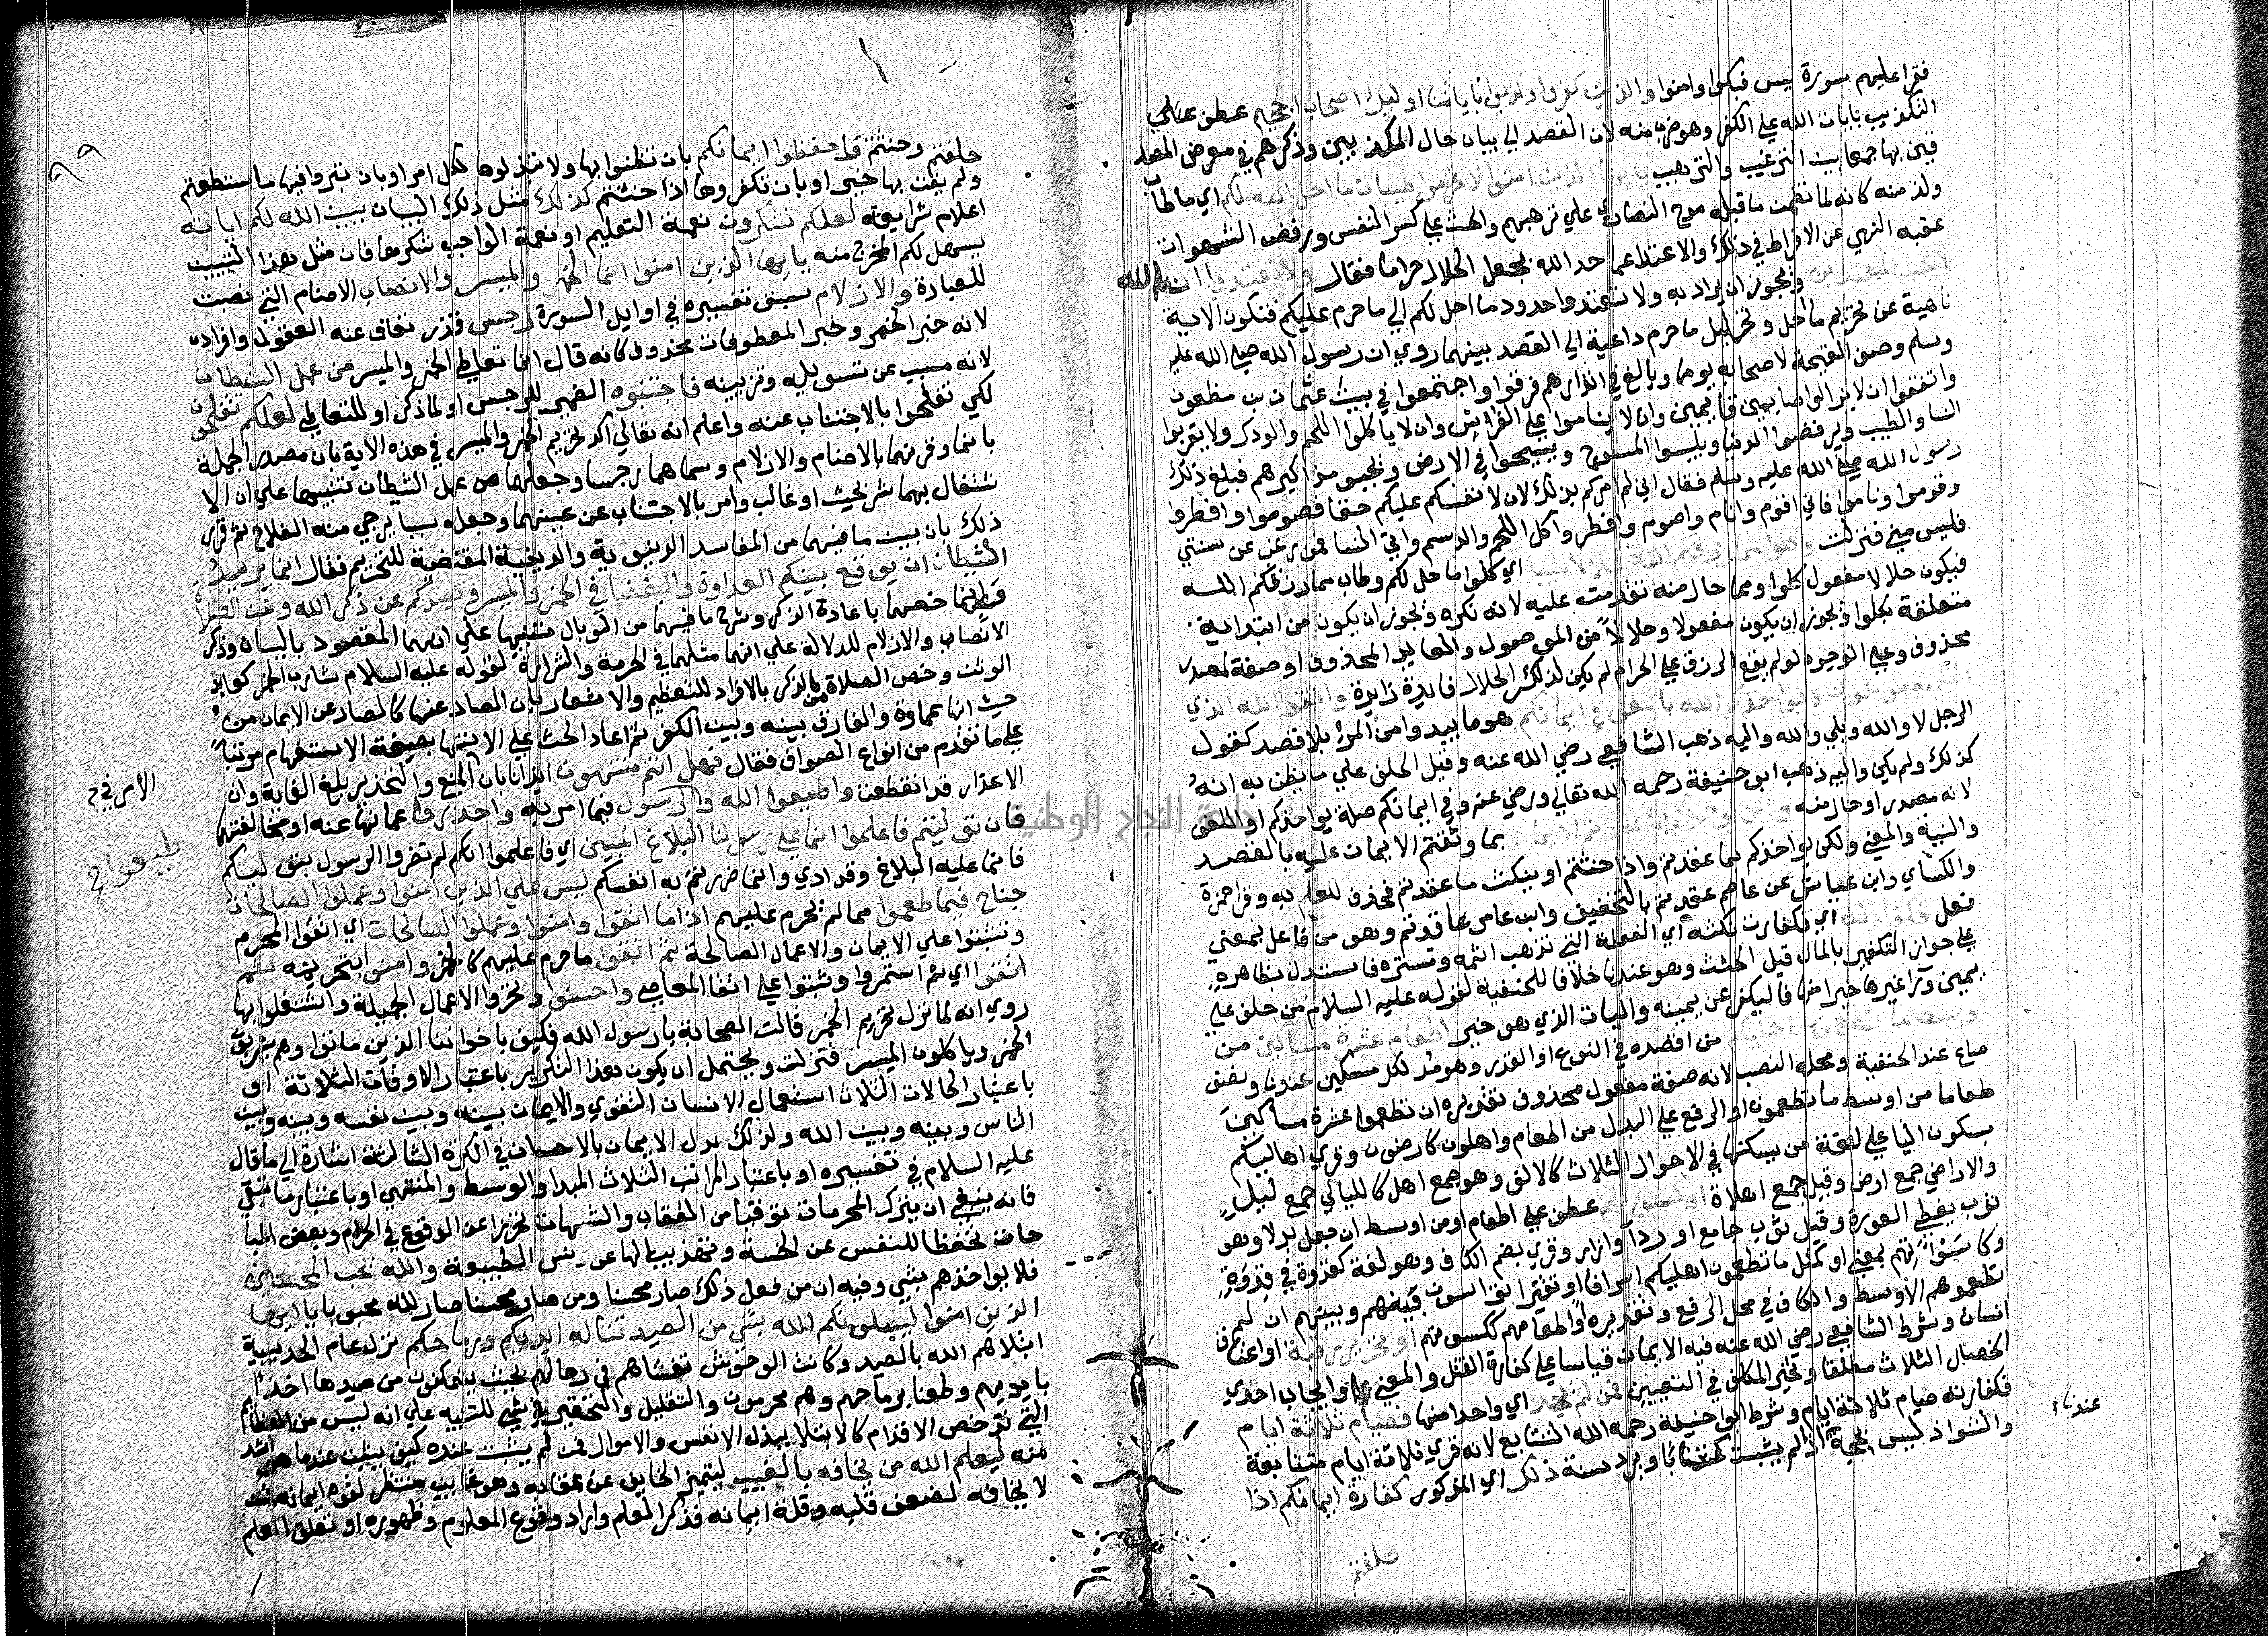 فقرا عليهم سورة يس فبكوا وامنوا والذين كفروا وكذبوا باياتنا اوليك اصحاب الجحيم عطف
التكذيب بايات الله علي الكفر وهو ضرب منه لان القصد الي بيان حال المكذبين وذكرهم في معرض المصد
قين بها جمعا بين الترغيب والترهيب يا ايها الذين امنوا لا تحرموا طيبات ما احل الله لكم اي ما طاب
ولذ منه كانه لما تضمن ما قبله مدح النصاري علي ترهبهم والحث علي كسر النفس ورفض الشهوات
عقبه النهي عن الافراط في ذلك والاعتدا عما حد الله بجعل الحلال حراما فقال ولا تعتدوا ان الله
لا يحب المعتدين ويجوز ان يراد به ولا تعتدوا حدود ما احل لكم الي ما حرم عليكم فتكون الاية
ناهية عن تحريم ما احل وتحليل ما حرم داعية الي القصد بينهما روي ان رسول الله صلي الله عليه
وسلم وصف القيمة لاصحابه يوما وبالغ في انذارهم فرقوا واجتمعوا في بيت عثمان بن مظعون
واتفقوا ان لا يزالوا صايمين قايمين وان لا يناموا علي الفرش وان لا ياكلوا اللحم والودك ولا يقربوا
النسا والطيب ويرفضوا الدنيا ويلبسوا المسوح ويسيحوا في الارض ويجبوا مذاكيرهم فبلغ ذلك
رسول الله صلي الله عليه وسلم فقال اني لم اومر بذلك ان لانفسكم عليكم حقا فصوموا وافطروا
وقوموا وناموا فاني اقوم وانام واصوم وافطر واكل اللحم والدسم واتي النسا فمن رغب عن سنتي
فليس مني فنزلت وكلوا مما رزقكم الله حلالا طيبا اي كلوا ما حل لكم وطاب مما رزقكم الله
فيكون حلالا مفعول كلوا ومما حال منه تقدمت عليه لانه نكره ويجوز ان يكون من ابتدائية
متعلقة بكلوا ويجوز ان يكون مفعولا وحلالا من الموصول والعايد المحذوف او صفة لمصدر
محذوف وعلي الوجوه لو لم يقع الرزق علي الحرام لم يكن لذكر الحلال فايدة زايدة واتقوا الله الذي
انتم به مومنون لا يواخذكم الله باللغو في ايمانكم هو ما يبدوا من المرء بلا قصد كقول
الرجل لا والله وبلي والله واليه ذهب الشافعي رضي الله عنه وقيل الحلف علي ما يظن به انه
كذلك ولم يكن واليه ذهب ابو حنيفة رحمه الله تعالي ورضي عنه وفي ايمانكم صلة يواخذكم او اللغو
لانه مصدر او حال منه ولكن يواخذكم بما عقدتم الايمان بما وثقتم الايمان عليه بالقصد
والنية والمعني ولكن يواخذكم بما عقدتم اذا حنثتم او بنكث ما عقدتم فحذف للعلم به وقرا حمزة
والكسائي وابن عياش عن عاصم عقدتم بالتخفيف وابن عامر عاقدتم وهو من فاعل بمعني
فعل فكفارته اي فكفارة نكثه اي الفعلة التي تذهب اثمه وتستره فاستدل بظاهره
علي جواز التكفير بالمال قبل الحنث وهو عندنا خلافا للحنفية لقوله عليه السلام من حلف علي
يمين وراي غيرها خيرا منها فاليكفر عن يمينه واليات الذي هو خير اطعام عشرة مساكين من
اوسط ما تطعمون اهليكم من اقصده في النوع او القدر وهو مد لكل مسكين عندنا ونصف
صاع عند الحنفية ومحله النصب لانه صفة مفعول محذوف تقديره ان تطعموا عشرة مساكين
طعاما من اوسط ما تطعمون او الرفع علي البدل من اطعام واهلون كارضون وقري اهاليكم
بسكون اليا علي لغة من يسكنها في الاحوال الثلاث كالالف وهو جمع اهل كالليالي جمع ليل
والاراضي جمع ارض وقيل جمع اهلاة او كسوتهم عطف علي اطعام او من اوسط ان جعل بدلا وهو
ثوب يغطي العورة وقيل ثوب جامع او ردآ وازار وقري بضم الكاف وهو لغة كقدوة في قدوة
وكاسوتهم بمعني او كمثل ما تطعمون اهليكم اسرافا او تقتيرا تواسون بينهم وبينهم ان لم
تطعموهم الاوسط والكاف في محل الرفع وتقديره او اطعامهم ككسوتهم او تحرير رقبة او اعتاق
انسان وشرط الشافعي رضي الله عنه فيه الايمان قياسا علي كفارة القتل والمعني او ايجاب احدي
الخصال الثلاث مطلقا وتخير المكلف في التعيين فمن لم يجد اي واحدا منها فصيام ثلاثة ايام
فكفارته صيام ثلاثة ايام وشرط ابو حنيفة رحمه الله التتابع لانه قري ثلاثة ايام متتابعة
والشواذ ليس بحجة اذ لم يثبت كتابا ويرد سنة ذلك اي المذكور كفارة ايمانكم اذا
عندنا
حلفتم
٩٩
حلفتم وحنثتم واحفظوا ايمانكم بان تظنوا بها ولا تبذلوها لكل امر او بان تبروا فيها ما استطعتم
ولم يفت بها خير او بان تكفروها اذا حنثتم كذلك مثل ذلك البيان يبين الله لكم اياته
اعلام شرايعه لعلكم تشكرون نعمة التعليم او نعمة الواجب شكرها فان مثل هذا التبيين
يسهل لكم المخرج منه يا ايها الذين امنوا انما الخمر والميسر والانصاب الاصنام التي نصبت
للعبادة والازلام سبق تفسيره في اوايل السورة رجس قذر تعاف عنه العقول وافراده
لانه خبر الخمر وخبر المعطوفات محذوف كانه قال انما تعاطي الخمر والميسر من عمل الشيطان
لانه مسبب عن تسويله وتزيينه فاجتنبوه الضمير للرجس او لما ذكر او للتعاطي لعلكم تفلحون
لكي تفلحوا بالاجتناب عنه واعلم انه تعالي اكد تحريم الخمر والميسر في هذه الاية بان صدر الجملة
بانما وقرنهما بالاصنام والازلام وسماهما رجسا وجعلهما من عمل الشيطان تنبيها علي ان الا
شتغال بهما شر بحت او غالب وامر بالاجتناب عن عينهما وجعله سببا يرجي منه الفلاح ثم قرر
ذلك بان بين ما فيهما من المفاسد الدنيوية والدينية المقتضية للتحريم فقال انما يريد
الشيطان ان يوقع بينكم العداوة والبغضا في الخمر والميسر ويصدكم عن ذكر الله وعن الصلاة
وانما خصهما باعادة الذكر وشرح ما فيهما من الوبال تنبيها علي انهما المقصود بالبيان وذكر
الانصاب والازلام للدلالة علي انهما مثلهما في الحرمة والشرارة لقوله عليه السلام شارب الخمر كعابد
الوثن وخص الصلاة من الذكر بالافراد للتعظيم والاشعار بان الصاد عنها كالصاد عن الايمان من
حيث انها عماده والفارق بينه وبين الكفر ثم اعاد الحث علي الانتها بصيغة الاستفهام مرتبا
علي ما تقدم من انواع الصوارف فقال فهل انتم منتهون ايذانا بان المنع والتحذير بلغ الغاية وان
الاعذار قد انقطعت واطيعوا الله والرسول فيما امر به واحذروا عما نهيا عنه او مخالفتهما
فان توليتم فاعلموا انما علي رسولنا البلاغ المبين اي فاعلموا انكم لم تضروا الرسول بتوليكم
فانما عليه البلاغ وقد ادي وانما ضررتم به انفسكم ليس علي الذين امنوا وعملوا الصالحات
جناح فيما طعموا مما لم يحرم عليهم اذا ما اتقوا وامنوا وعملوا الصالحات اي اتقوا المحرم
وثبتوا علي الايمان والاعمال الصالحة ثم اتقوا ما حرم عليهم كالخمر وامنوا بتحريمه ثم
اتقوا اي ثم استمروا وثبتوا علي اتقا المعاصي واحسنوا وتحروا الاعمال الجميلة واشتغلوا بها
روي انه لما نزل تحريم الخمر قالت الصحابة يا رسول الله فكيف باخواننا الذين ماتوا وهم يشربون
الخمر وياكلون الميسر فنزلت ويحتمل ان يكون هذا التكرير باعتبار الاوقات الثلاثة او
باعتبار الحالات الثلاث استعمال الانسان التقوي والايمان بينه وبين نفسه وبينه وبين
الناس وبينه وبين الله ولذلك بدل الايمان بالاحسان في الكرة الثالثة اشارة الي ما قال
عليه السلام في تفسيره او باعتبار المراتب الثلاث المبدا والوسط والمنتهي او باعتبار ما يتقي
فانه ينبغي ان يترك المحرمات توقيا من العقاب والشبهات تحرزا عن الوقوع في الحرام وبعض المبا
حات تحفظا للنفس عن الخسة وتهذيبا لها عن دنس الطبيعة والله يحب المحسنين
فلا يواخذهم بشي وفيه ان من فعل ذلك صار محسنا ومن صار محسنا صار لله محبوبا يا ايها
الذين امنوا ليبلونكم الله بشي من الصيد تناله ايديكم ورماحكم نزل عام الحديبية
ابتلاهم الله بالصيد وكانت الوحوش تغشاهم في رحالهم بحيث يتمكنون من صيدها اخذا
بايديهم وطعنا برماحهم وهم محرمون والتقليل والتحقير في بشي للتنبيه علي انه ليس من العظائم
التي تدحض الاقدام كالابتلا ببذل الانفس والاموال فمن لم يثبت عنده كيف يثبت عند ما هو اشد
منه ليعلم الله من يخافه بالغيب ليتميز الخايف عن عقابه وهو غايب منتظر لقوة ايمانه ممن
لا يخافه لضعف قلبه وقلة ايمانه فذكر العلم واراد وقوع المعلوم وظهوره او تعلق العلم
الأمر في
طيعوا
النجاح الوطنية